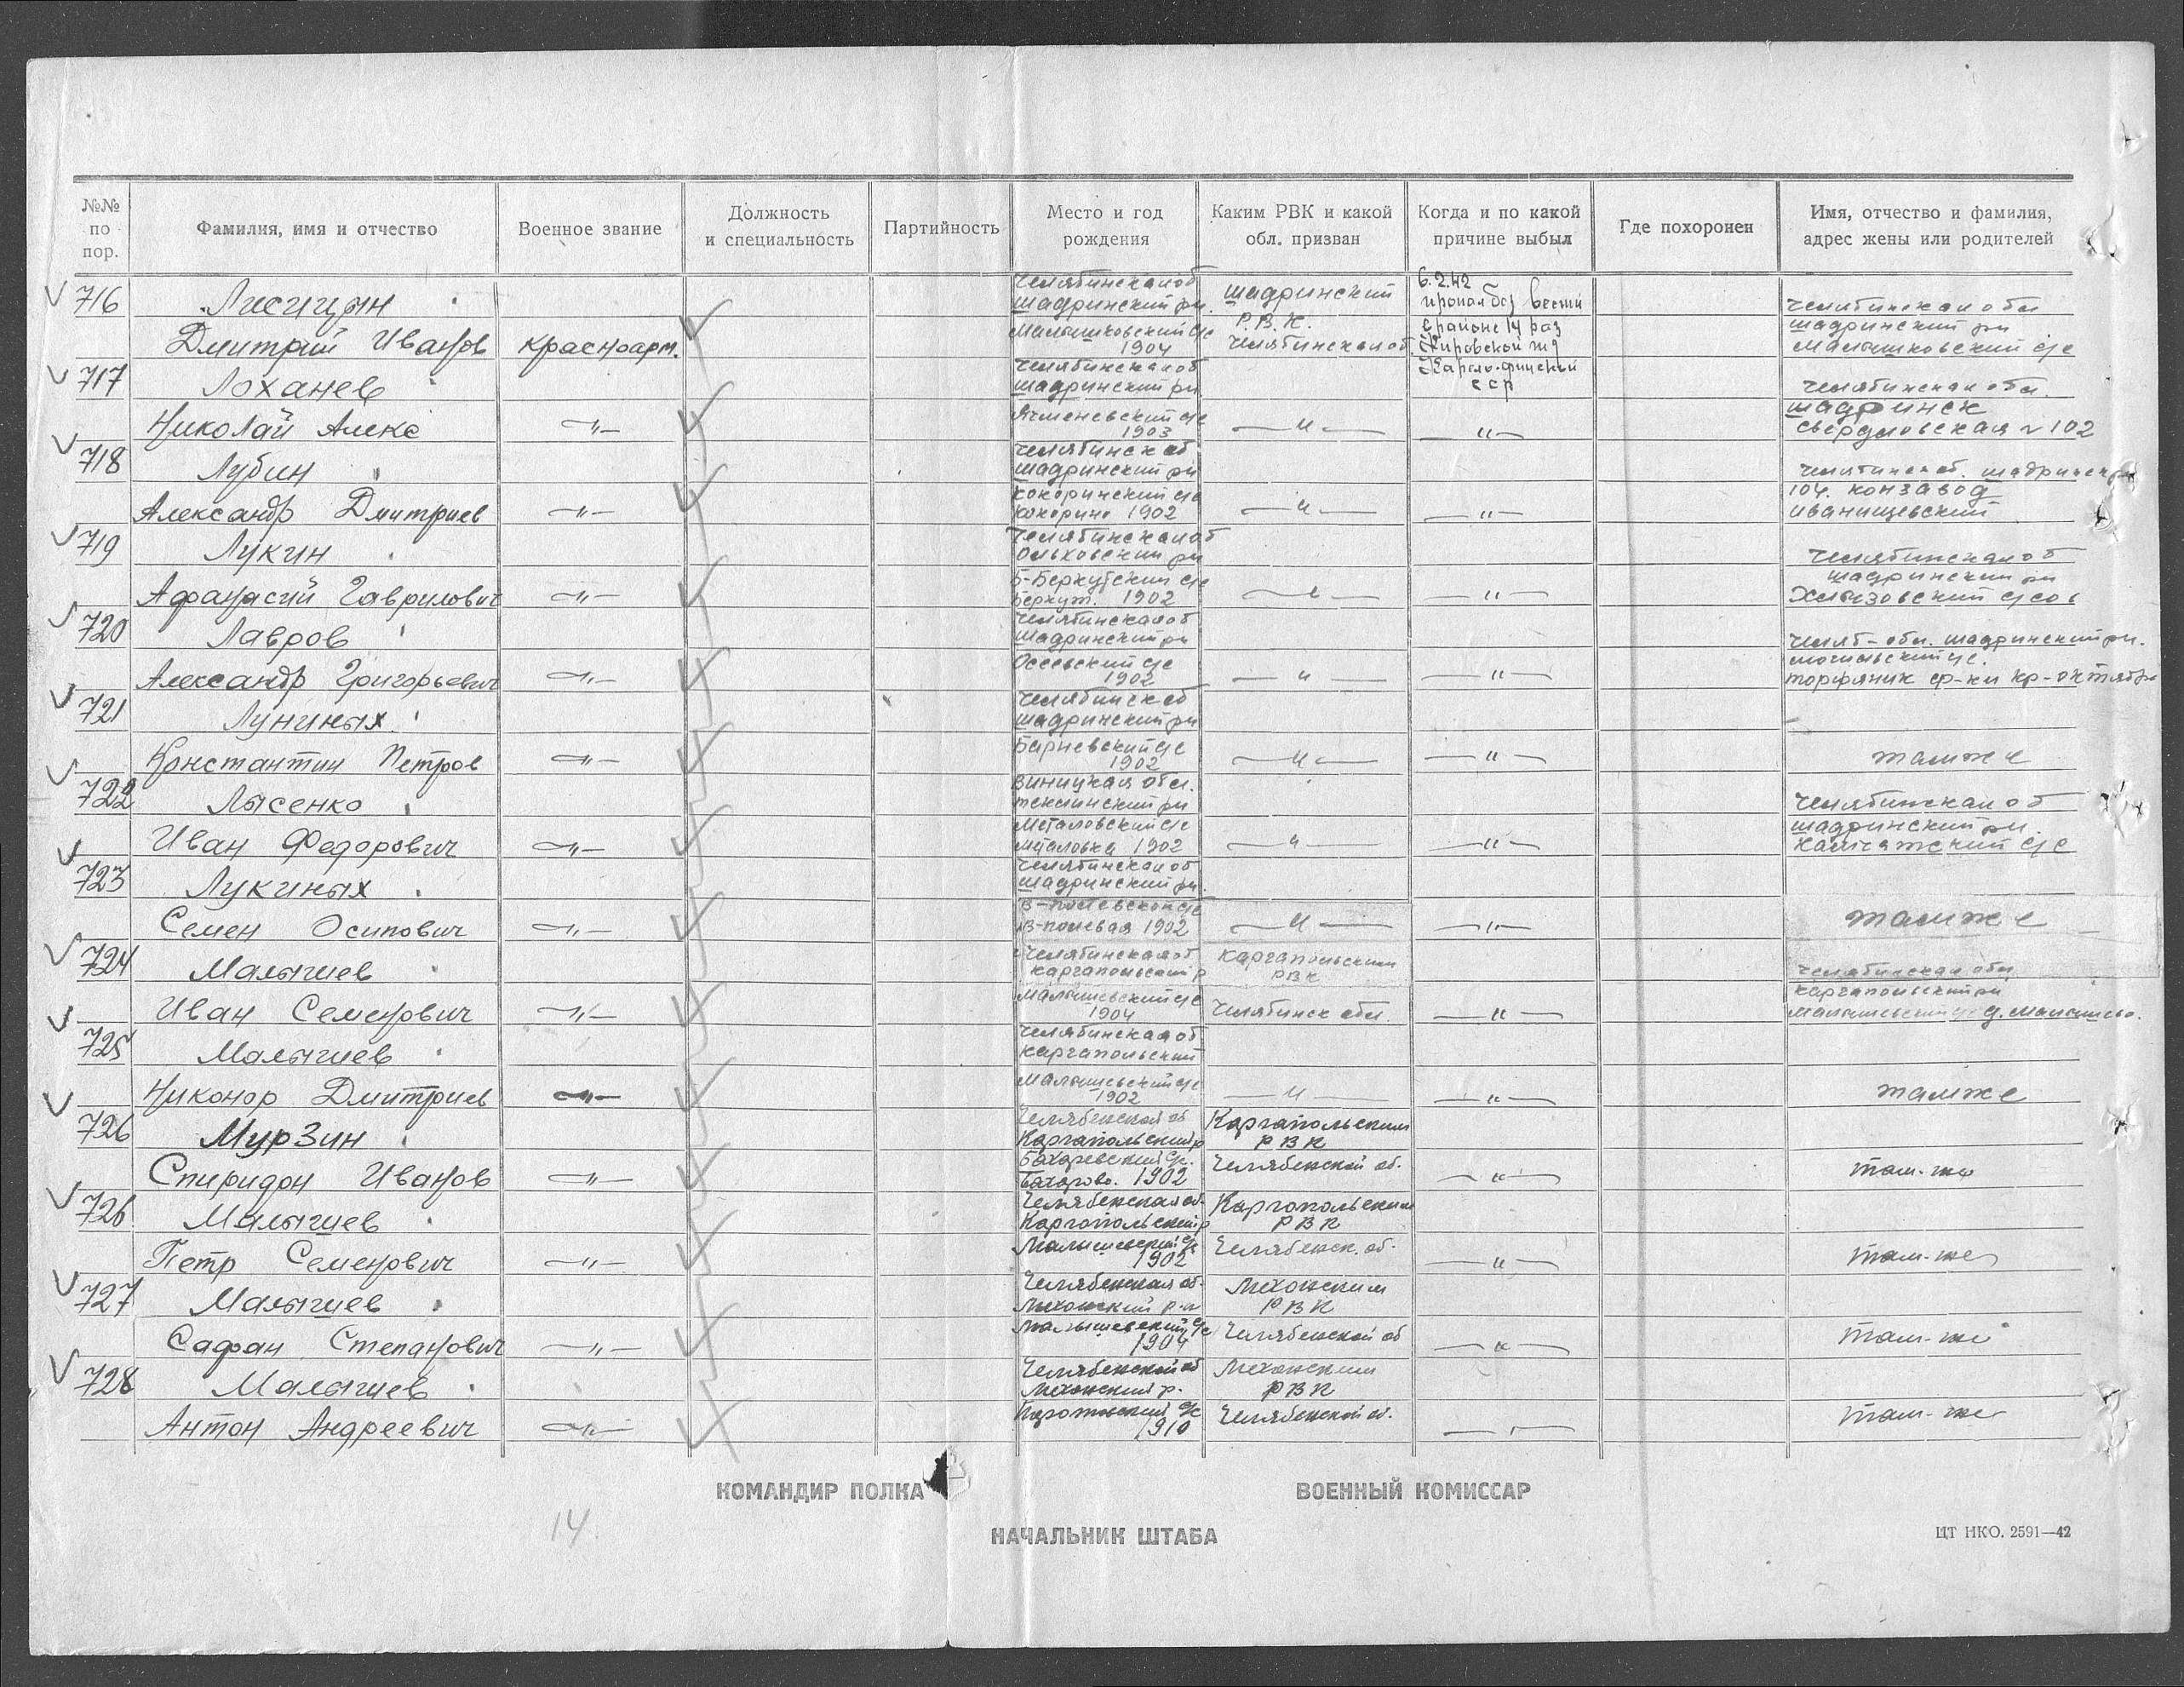 №№ по пор.
Фамилия, имя и отчество
Военное звание
Должность и специальность
Партийность
Место и год рождения
Каким РВК и какой обл. призван
Когда и по какой причине выбыл
Где похоронен
Имя, отчество и фамилия, адрес жены или родителей
716 Лисицын Челябинская об шадринский рн. шадринский 6.2.42 пропал без вести
Дмитрий Иванов красноарм. Малышковский с/с 1904 Р.В.К. Челябинская об. в районе 14 раз Кировской жд Карело-финской сср
Челябинская обл шадринский рн Малышковский с/с
717 Лоханев Челябинская об шадринский рн Челябинская обл.
Николай Алекс —"— 1903 —"— —"— шадринск свердловская 102
718 Лубин Челябинск об шадринский рн
Александр Дмитриев —"— кокоринский с/с кокорино 1902 —"— —"— 104. конзавод иванищевский
719 Лукин Челябинская об Ольховский рн Челябинская об
Афанасий Гаврилович —"— 1902 —"— —"— шадринский рн
720 Лавров Челябинская об шадринский рн Челяб-обл. шадринский рн.
Александр Григорьевич —"— Осеевский с/с 1902 —"— —"— торфяник
721 Луниных Челябинск об шадринский рн
Константин Петров —"— 1902 —"— —"— тамже
722 Лысенко Виницкая обл. Челябинская об
Иван Федорович —"— 1902 —"— —"— шадринский рн.
723 Лукиных Челябинская об шадринский рн.
Семен Осипович —"— 1902 —"— —"— тамже
724 Малышев Челябинская об каргапольский р каргапольским РВК Челябинская обл
Иван Семенович —"— Малышевский с/с 1904 Челябинск обл. —"— каргапольский рн д. Малышево.
725 Малышев Челябинская об каргапольский
Никонор Дмитриев —"— Малышевский с/с 1902 —"— —"— тамже
726 Мурзин Челябенской об Каргапольский р Каргапольским РВК
Спиридон Иванов —"— 1902 Челябенской об. —"— там-же
726 Малышев Челябенская об. Каргопольский р Каргопольским РВК
Петр Семенович —"— Малышевский с/с 1902 Челябенск. об. —"— там-же
727 Малышев Челябенская об. Мехонский р-н Мехонским РВК
Сафан Степанович —"— Малышевский с/с 1904 Челябенской об —"— там-же
728 Малышев Челябенской об Мехонский р. Мехонским РВК
Антон Андреевич —"— 1910 Челябенской об. —"— там-же
КОМАНДИР ПОЛКА
ВОЕННЫЙ КОМИССАР
14.
НАЧАЛЬНИК ШТАБА
ЦТ НКО. 2591—42